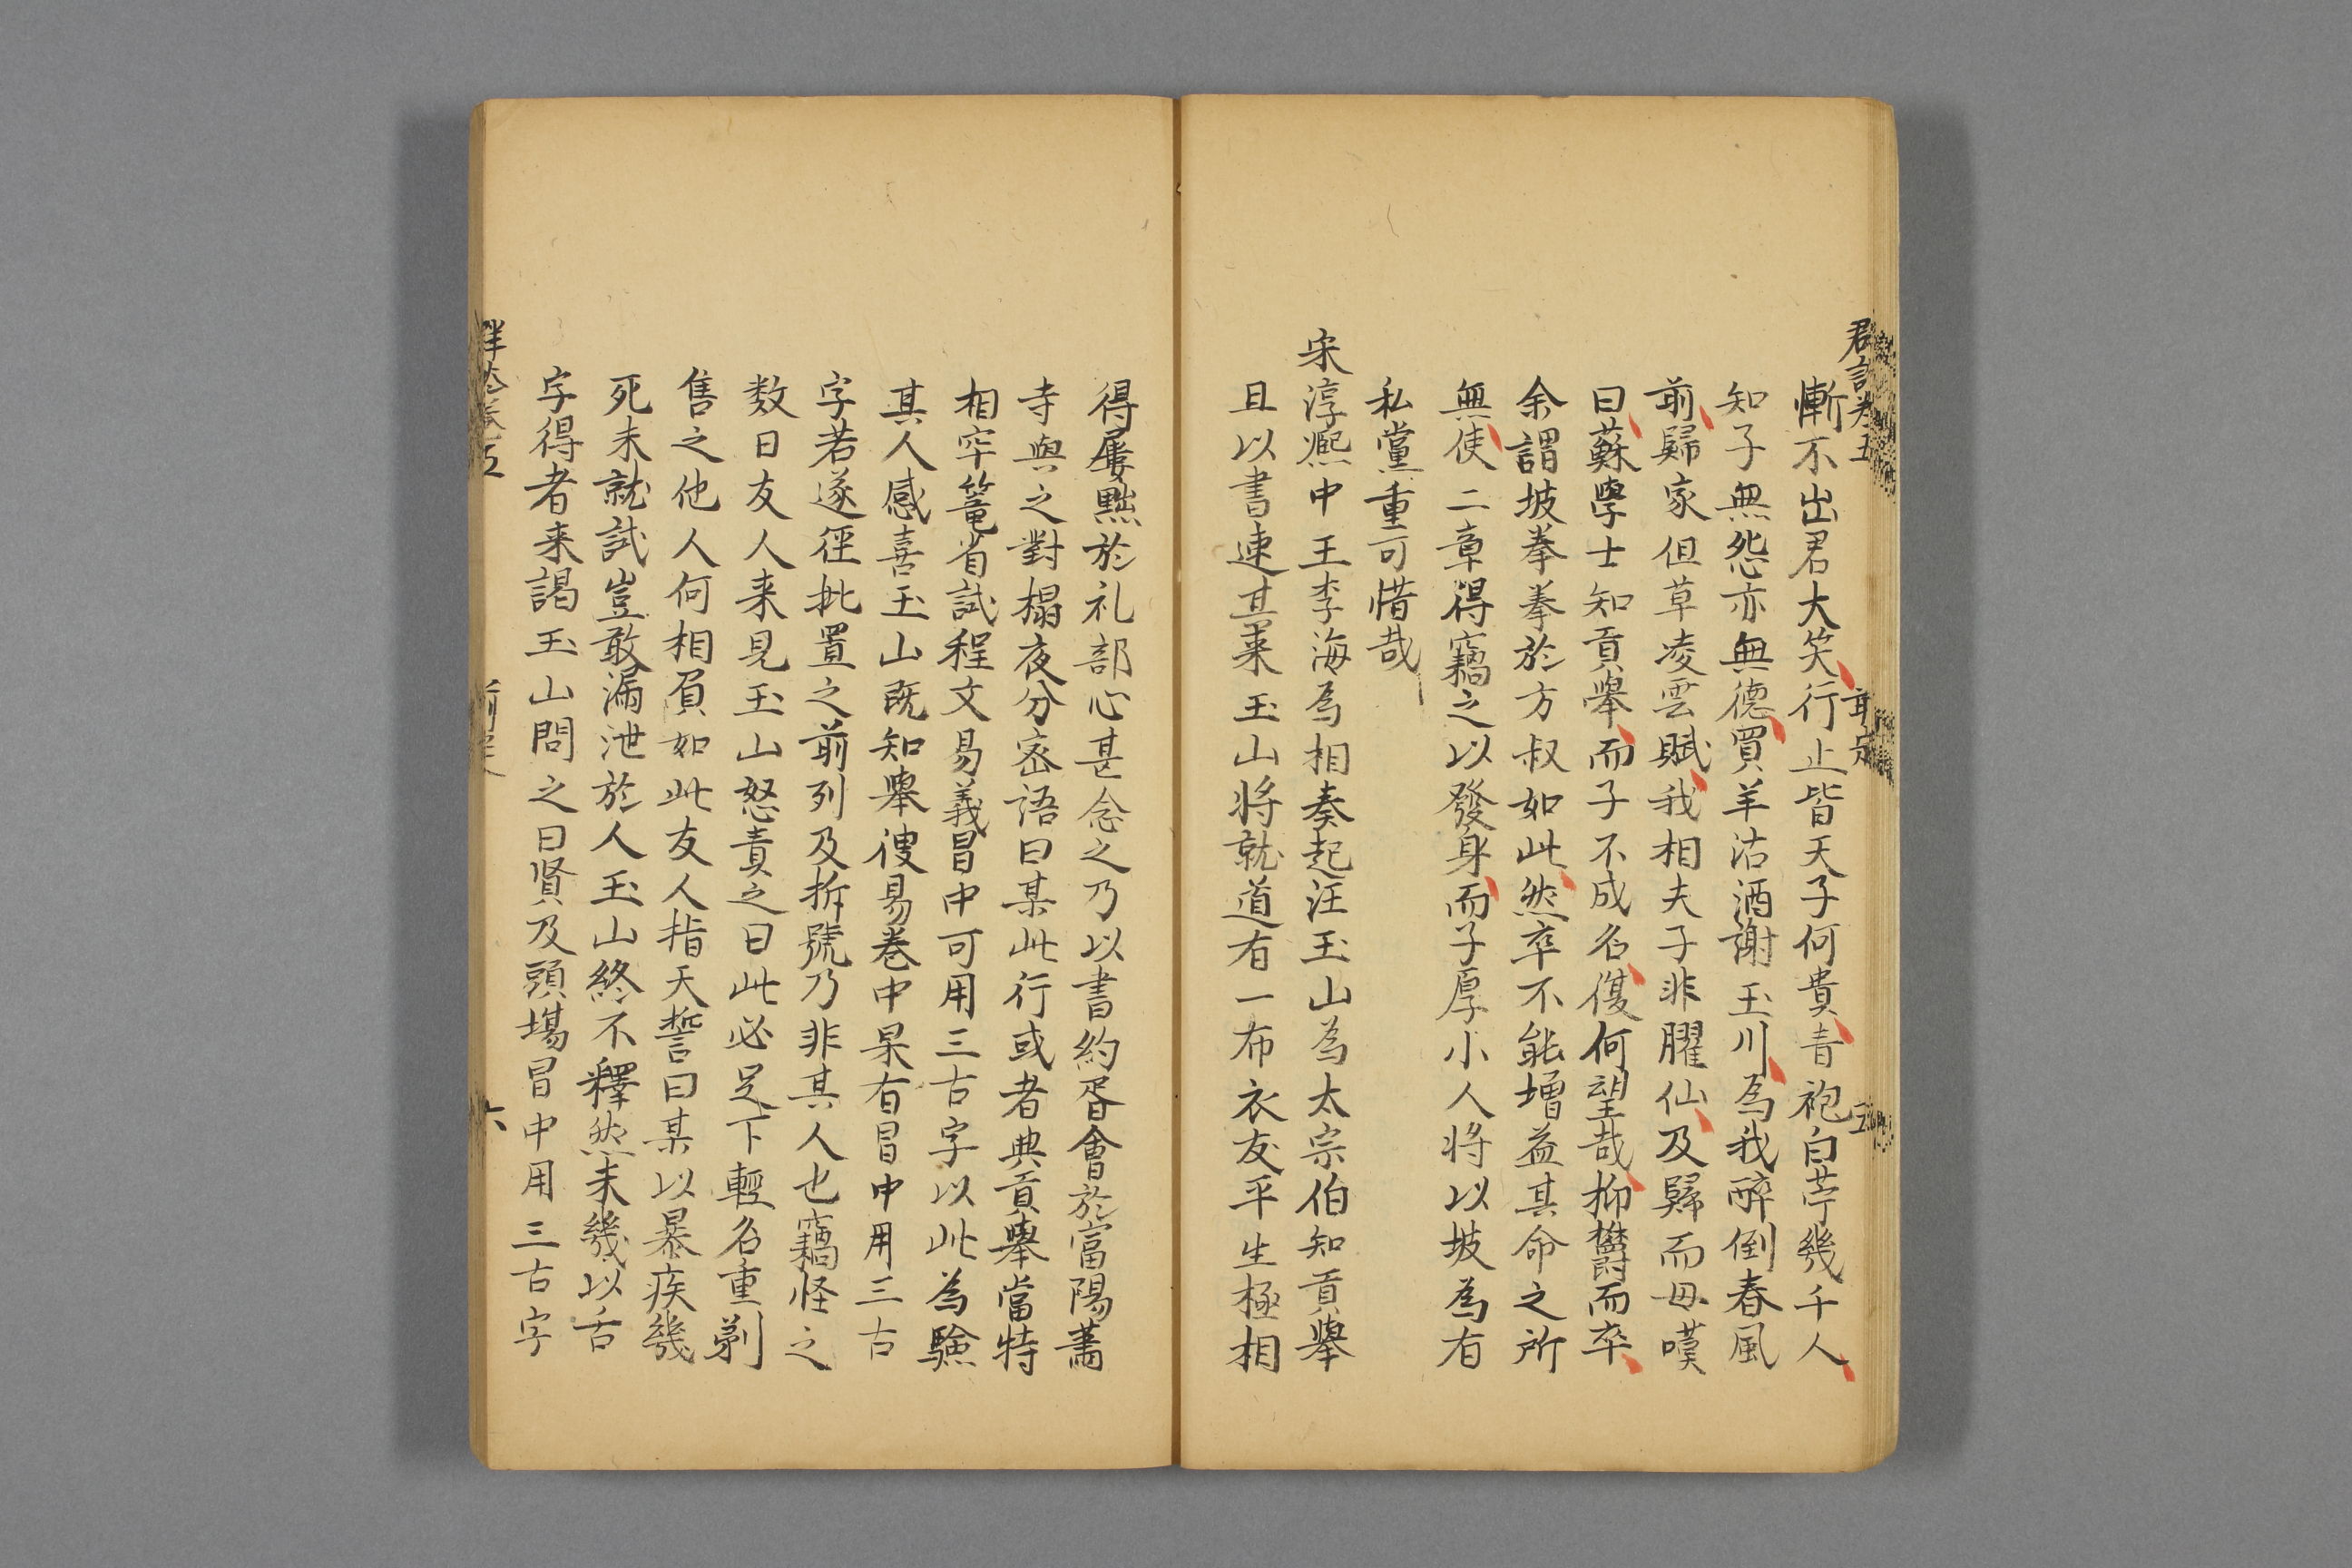 慚不出君大笑行止皆天子何貴青袍白苧幾千人
知子無怨亦無德買羊沽酒謝玉川為我醉倒春風
前歸家但草凌雲賦我相夫子非臞仙及歸而母嘆
曰蘇學士知貢舉而子不成名復何望哉抑欝而卒
余謂坡拳拳於方叔如此然卒不能增益其命之所
無使二章得竊之以發身而子厚小人將以坡為有
私黨重可惜哉
宋淳熈中王李海為相奏起汪玉山為太宗伯知貢舉
且以書速其来玉山將就道有一布衣友平生極相
得屢黜於礼部心甚念之乃以書約胥會於富陽蕭
寺與之對榻夜分密語曰某此行或者典貢舉當特
相牢篭省試程文易義冒中可用三古字以此為驗
其人感喜玉山既知舉搜易巻中果有冒中用三古
字若遂徑批置之前列及拆號乃非其人也竊怪之
数日友人来見玉山怒責之曰此必足下輕名重剶
售之他人何相負如此友人指天誓曰某以暴疾幾
死未就試豈敢漏泄於人玉山終不釋然未幾以古
字得者来謁玉山問之曰賢及頭場冒中用三古字